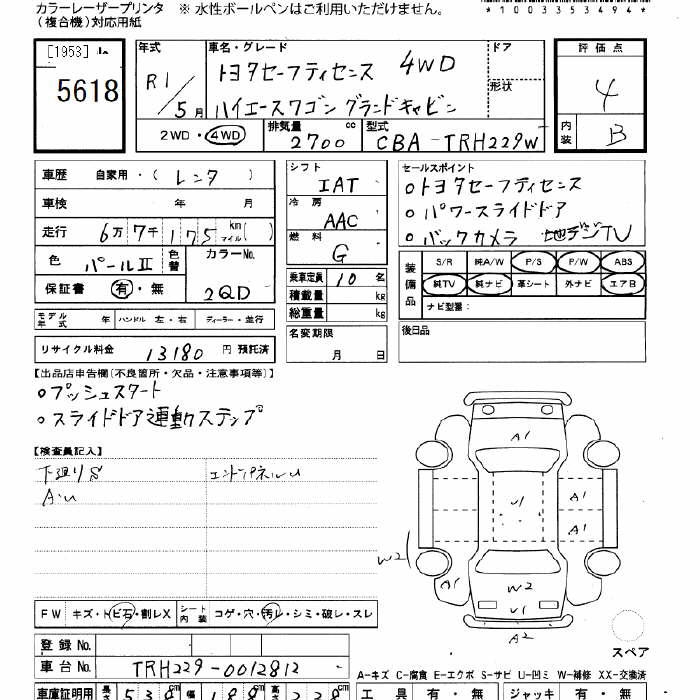 カラーレーザープリンタ ※ 水性ボールペンはご利用いただけません。
(複合機)対応用紙
*1003353494*
[1953]
5618
年式
R1/5月
2WD・4WD
車名・グレード
トヨタセーフティセンス 4WD
ハイエースワゴン グランドキャビン
ドア
形状
排気量 2700 cc
型式 CBA-TRH229W
評価点
4
内装 B
車歴 自家用・( レンタ )
車検 年 月
走行 6万7千175 km マイル( )
色 パールII 色替
カラーNo. 2QD
保証書 有・無
モデル年式 年 ハンドル 左・右 ディーラー・並行
リサイクル料金 13180 円 預託済
シフト IAT
冷房 AAC
燃料 G
乗車定員 10 名
積載量 kg
総重量 kg
名変期限
月 日
セールスポイント
○トヨタセーフティセンス
○パワースライドドア
○バックカメラ 地デジTV
装備品
S/R 純A/W P/S P/W ABS
純TV 純ナビ 革シート 外ナビ エアB
ナビ型番:
後日品
【出品店申告欄(不良箇所・欠品・注意事項等)】
○プッシュスタート
○スライドドア連動ステップ
【検査員記入】
下廻りS エンドパネルU
A・U
FW キズ・トビ石・割レX シート内装 コゲ・穴・汚レ・シミ・破レ・スレ
登録No.
車台No. TRH229-0012812
車庫証明用 長さ 538cm 幅 188cm 高さ 228cm
A1
U1
A1
A1
W2
A1
W2
U1
A2
スペア
A-キズ C-腐食 E-エクボ S-サビ U-凹ミ W-補修 XX-交換済
工具 有・無 ジャッキ 有・無